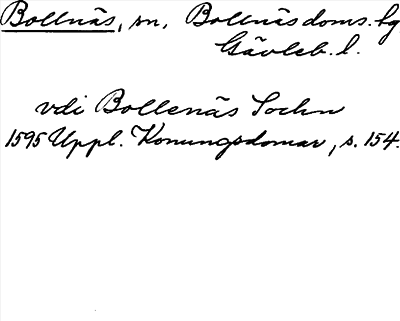 Bollnäs, sn, Bollnäs doms. hg
Gävleb. l.
vdi Bollenäs Sochn
1595 Uppl. Konungsdomar, s. 154.